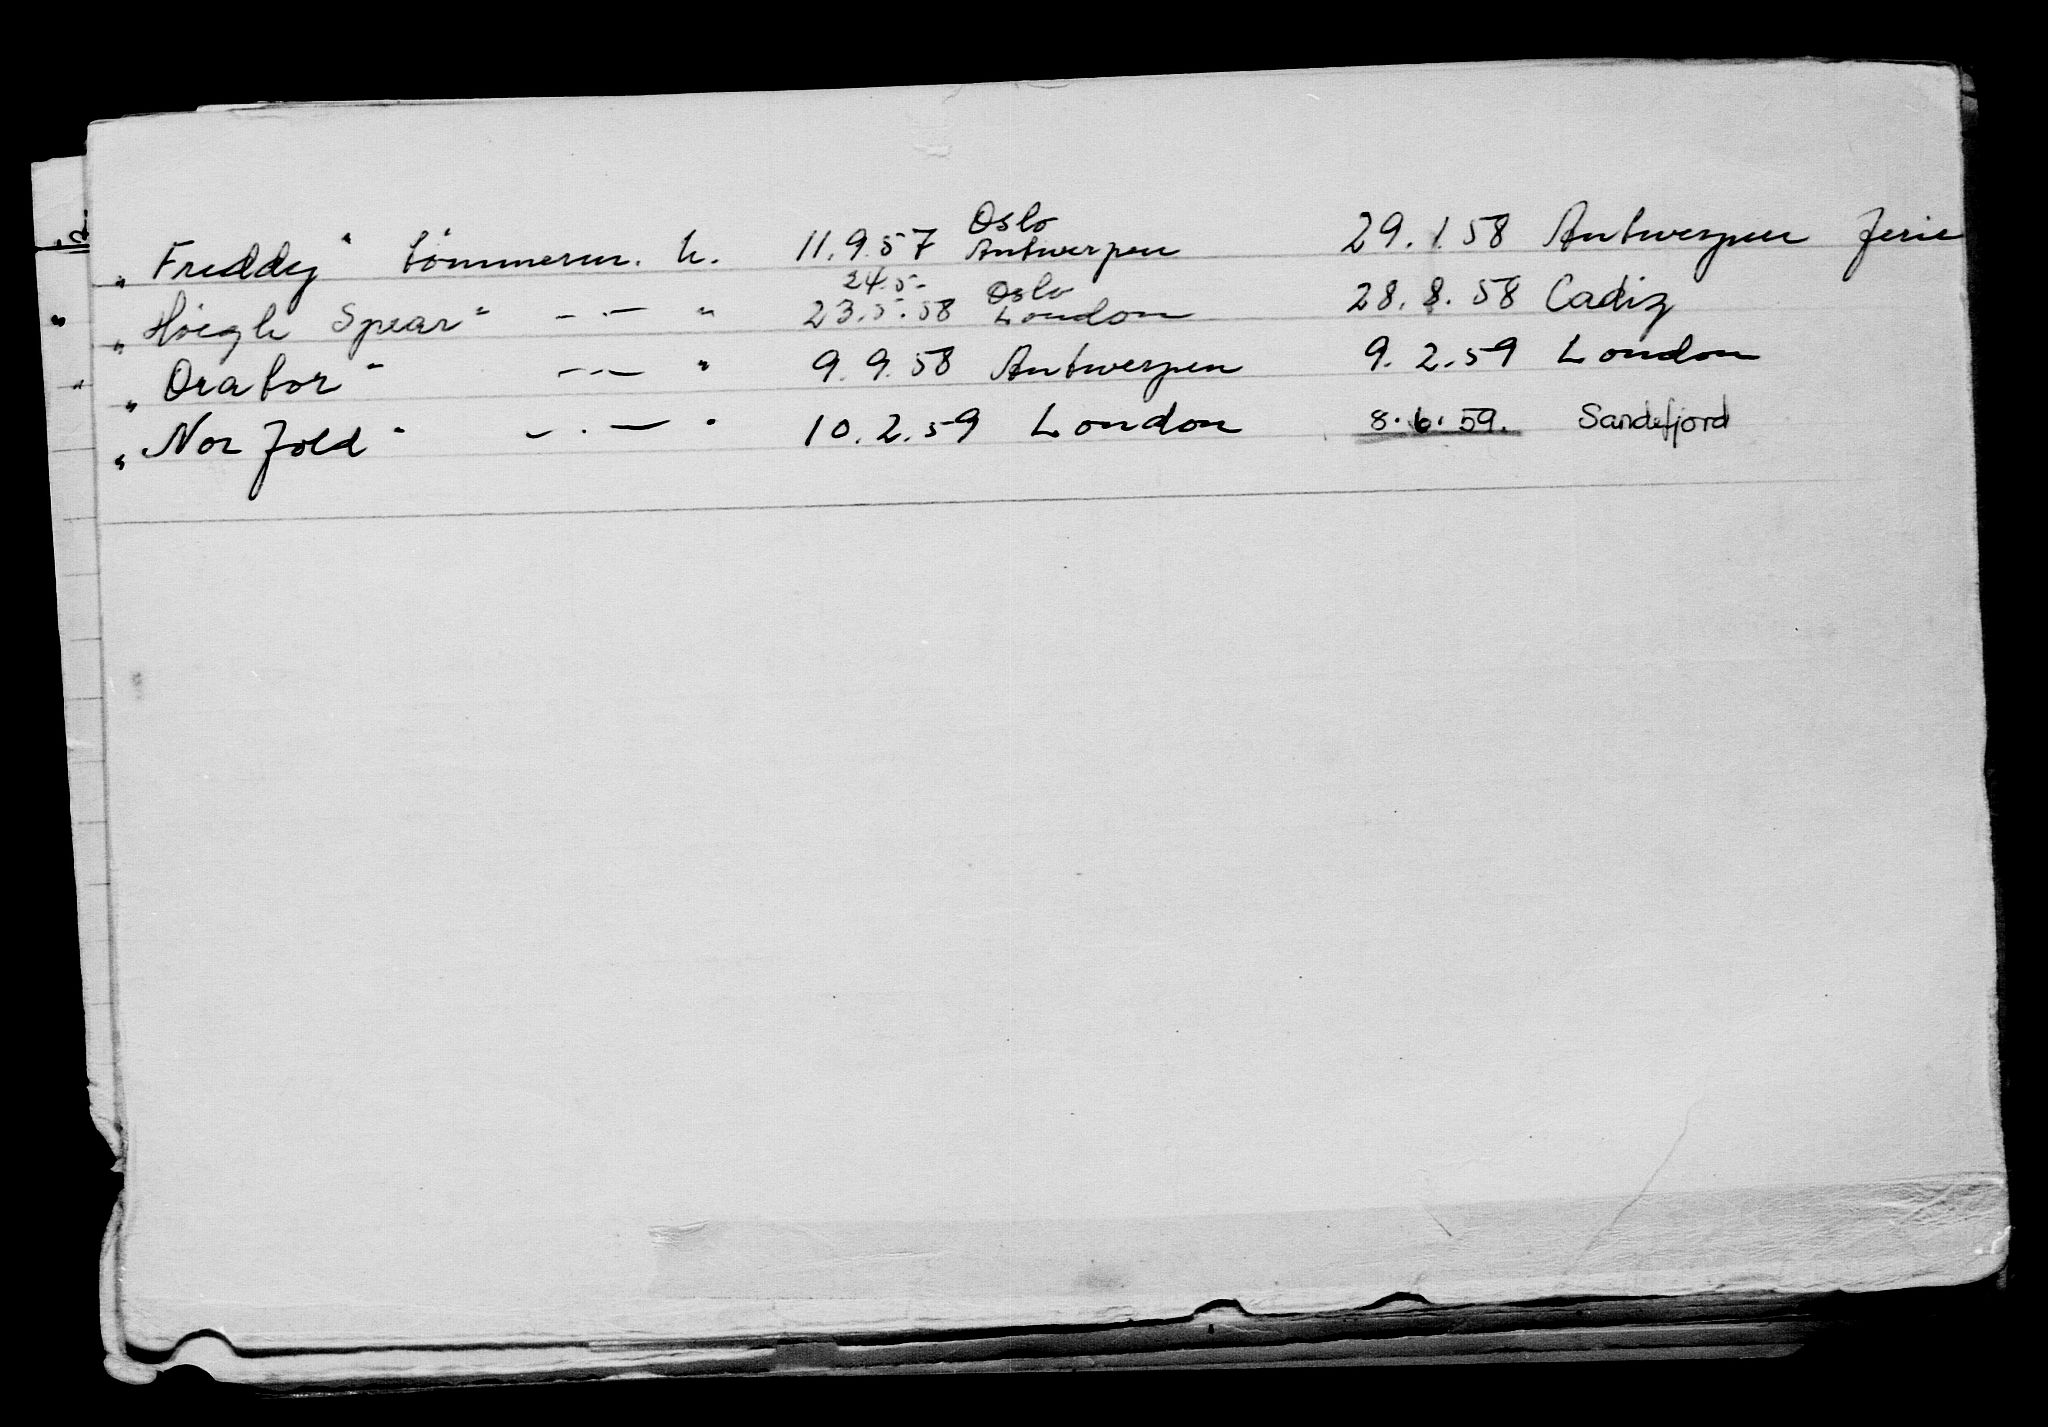 "Freddy" tömmerm. u. 11.9.57 Oslo Antwerpen 29.1.58 Antwerpen ferie
24.5.
"Höegh Spear" – . — " 23.5.58 Oslo London 28.8.58 Cadiz
"Orator" – . — " 9.9.58 Antwerpen 9.2.59 London
"Norfold" – . — " 10.2.59 London 8.6.59. Sandefjord